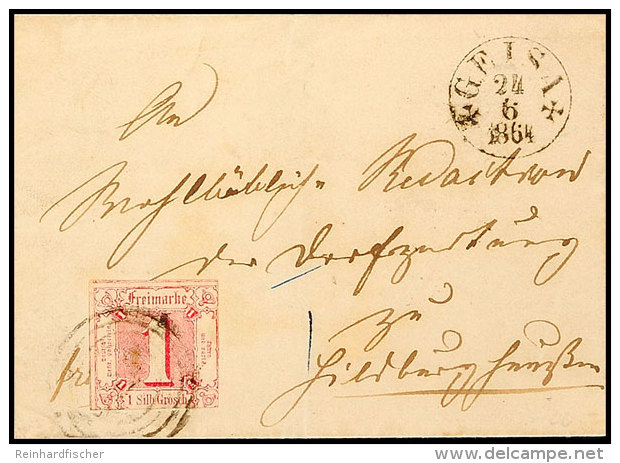 ✠ GEISA ✠
24
6
1864
An
Wohllöbliche Redaction
der Dorfzeitung
zu
Hildburghausen
Freimarke
1
1 Silb. Grosch.
Reinhardfischer
www.delcampe.net